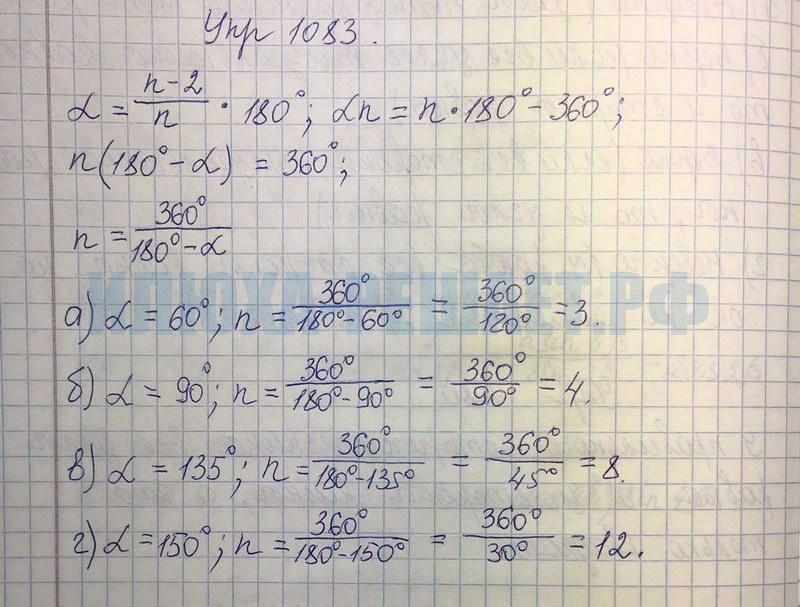 Упр 1083.
α = (n-2)/n · 180°; αn = n·180° - 360°;
n(180° - α) = 360°;
n = 360°/(180° - α)
ИЛЮХА-РЕШАЕТ.РФ
а) α = 60°; n = 360°/(180° - 60°) = 360°/120° = 3.
б) α = 90°; n = 360°/(180° - 90°) = 360°/90° = 4.
в) α = 135°; n = 360°/(180° - 135°) = 360°/45° = 8.
г) α = 150°; n = 360°/(180° - 150°) = 360°/30° = 12.